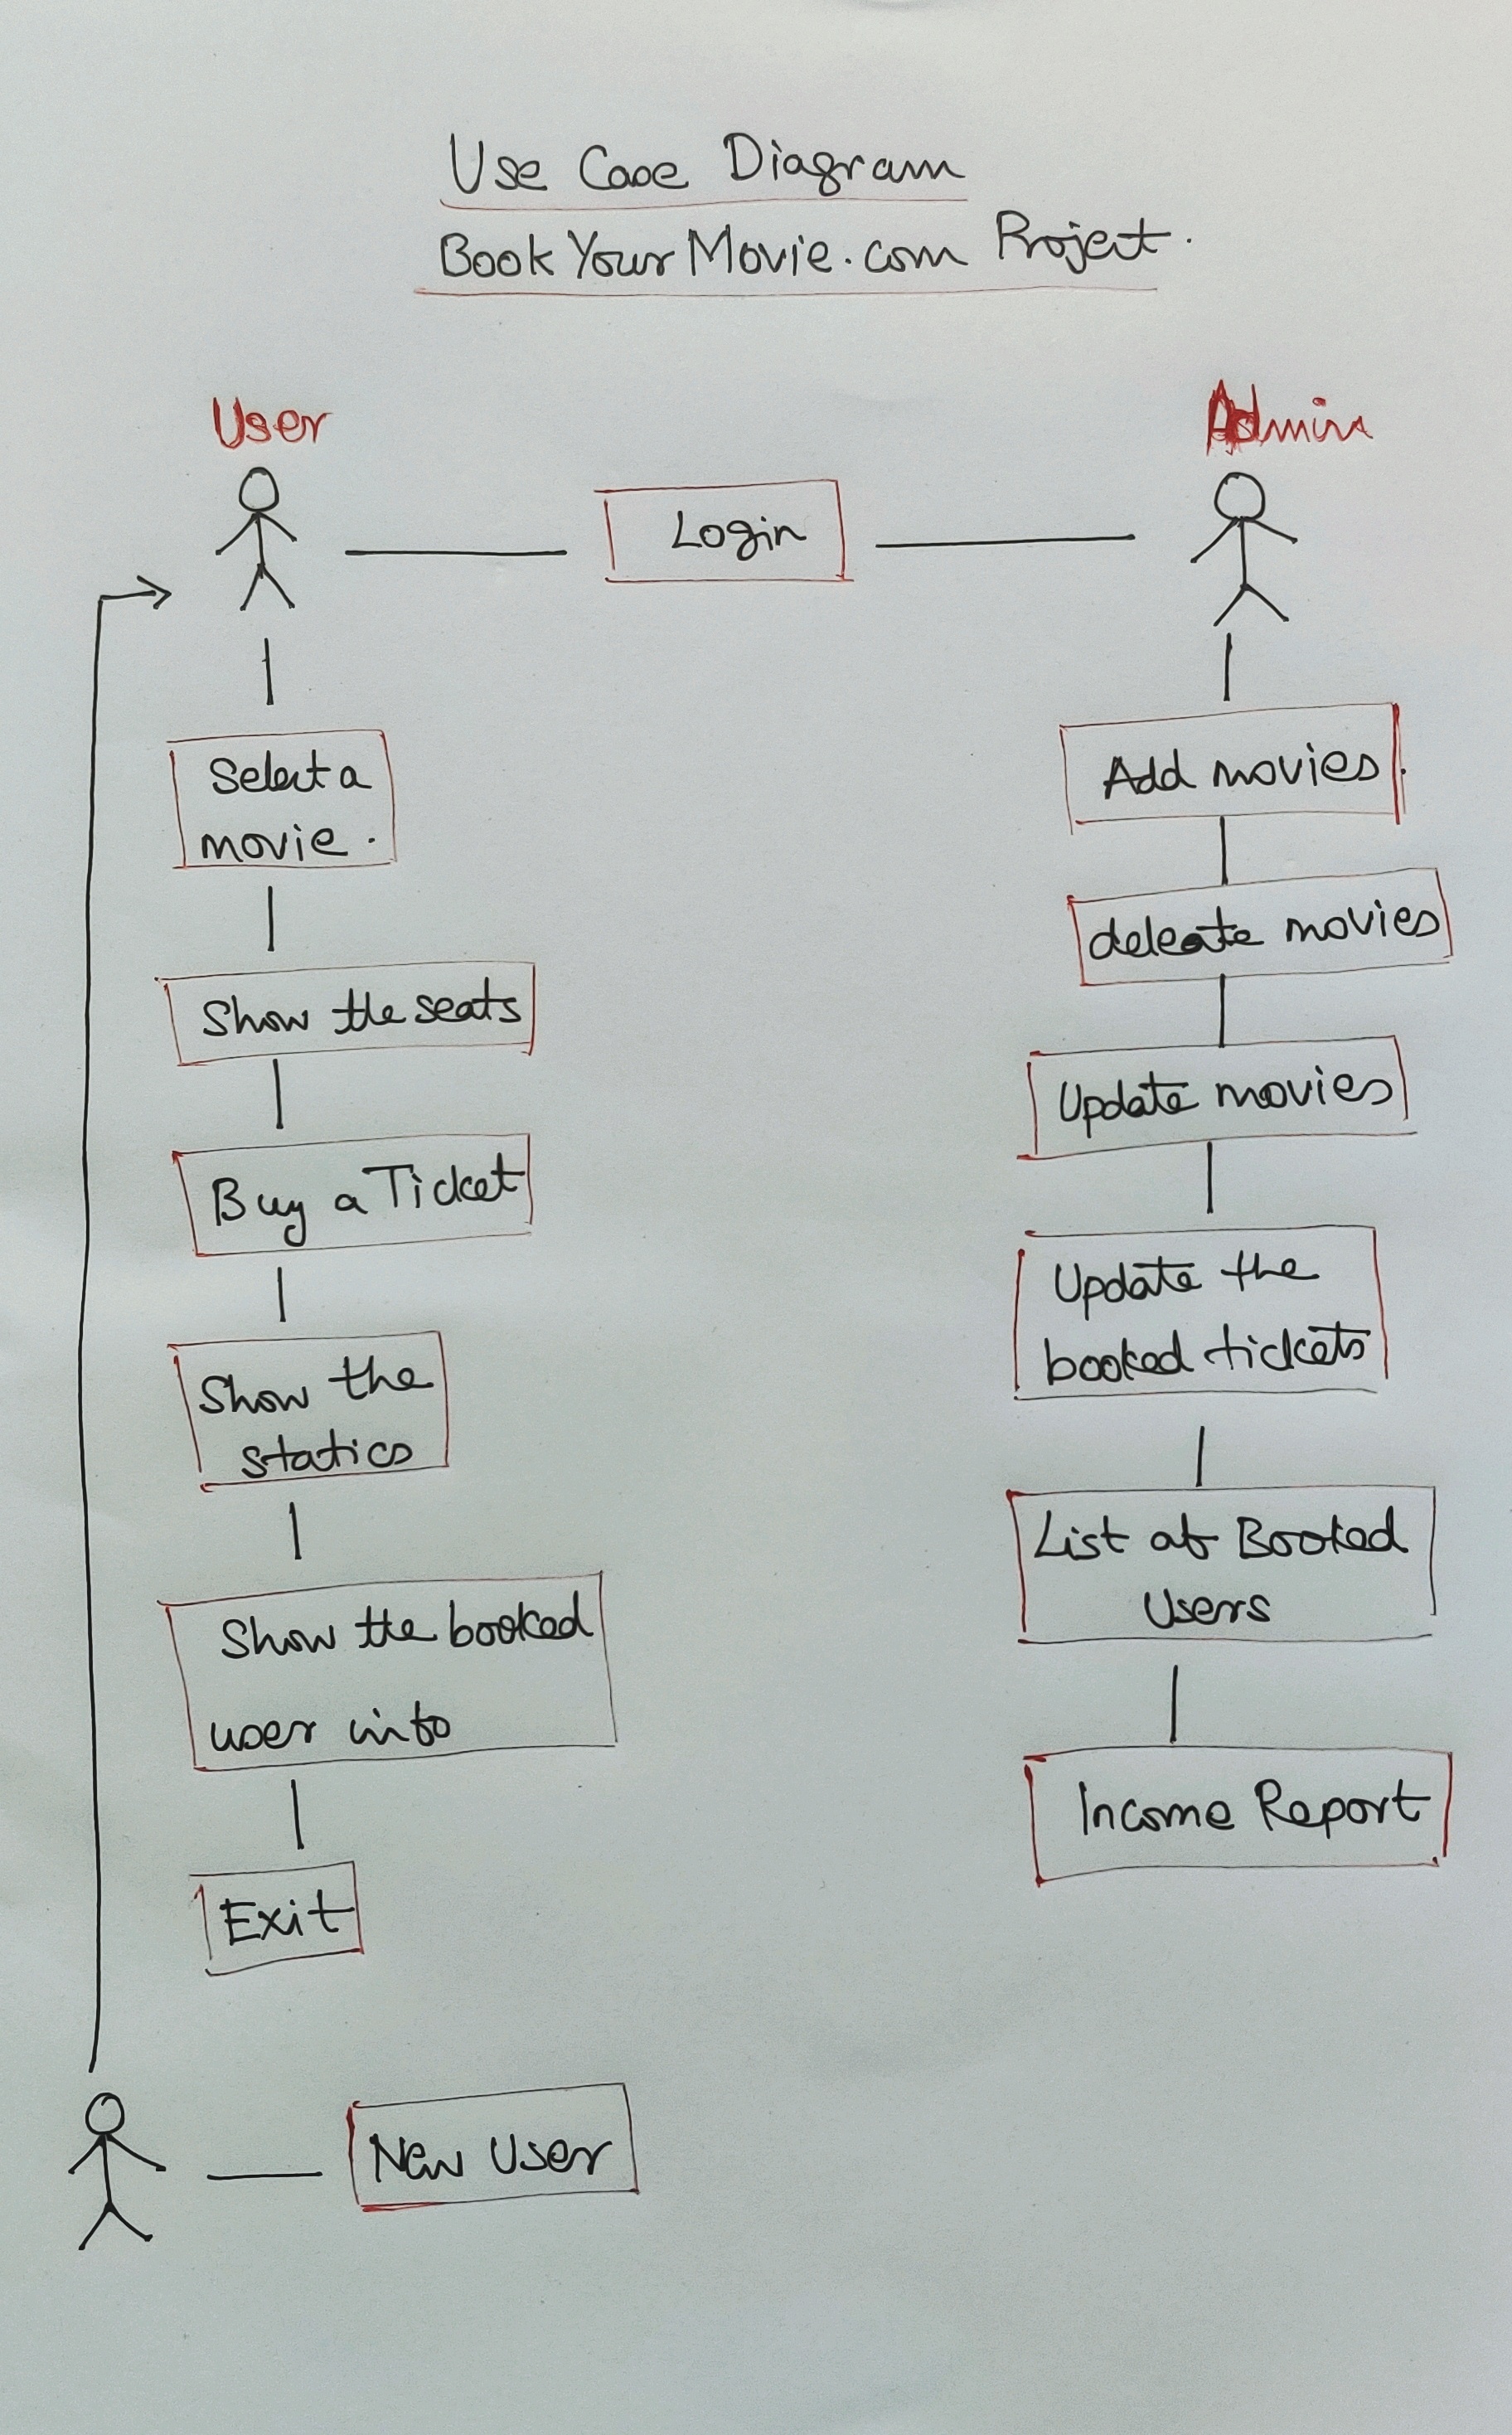 Use Case Diagram
BookYourMovie.com Project.
User
Admin
Login
Select a
movie.
Show the seats
Buy a Ticket
Show the
statics
Show the booked
user info
Exit
Add movies.
deleate movies
Update movies
Update the
booked tickets
List of Booked
Users
Income Report
New User